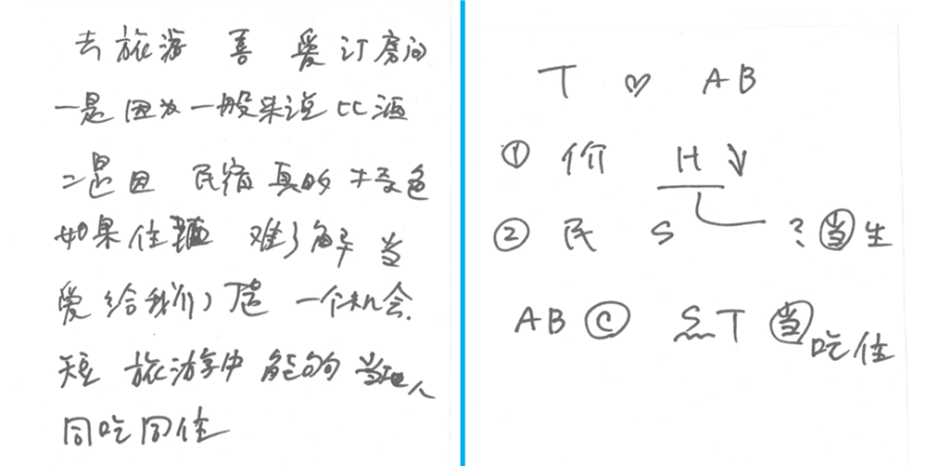 去旅游 喜 爱订房间
一是因为一般来说比酒
二是因 民宿真的 特色
如果住 难了解 当
爱给我们 一个机会.
短 旅游中 能够 当地人
同吃同住
T ♡ AB
① 价 H ↓
② 民 S ? 当生
AB © S T 当 吃住